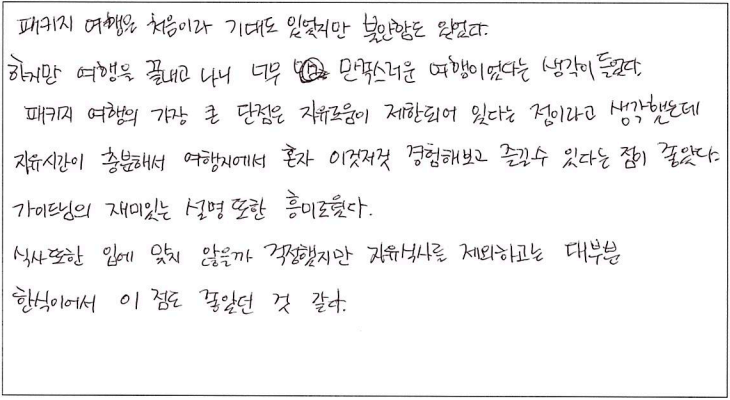 패키지 여행은 처음이라 기대도 있었지만 불안함도 있었다.
하지만 여행을 끝내고 나니 너무 만족스러운 여행이었다는 생각이 들었다.
패키지 여행의 가장 큰 단점은 자유로움이 제한되어 있다는 점이라고 생각했는데
자유시간이 충분해서 여행지에서 혼자 이것저것 경험해보고 즐길수 있다는 점이 좋았다.
가이드님의 재미있는 설명 또한 흥미로웠다.
식사또한 입에 맞지 않을까 걱정했지만 자유식사를 제외하고는 대부분
한식이어서 이 점도 좋았던 것 같다.